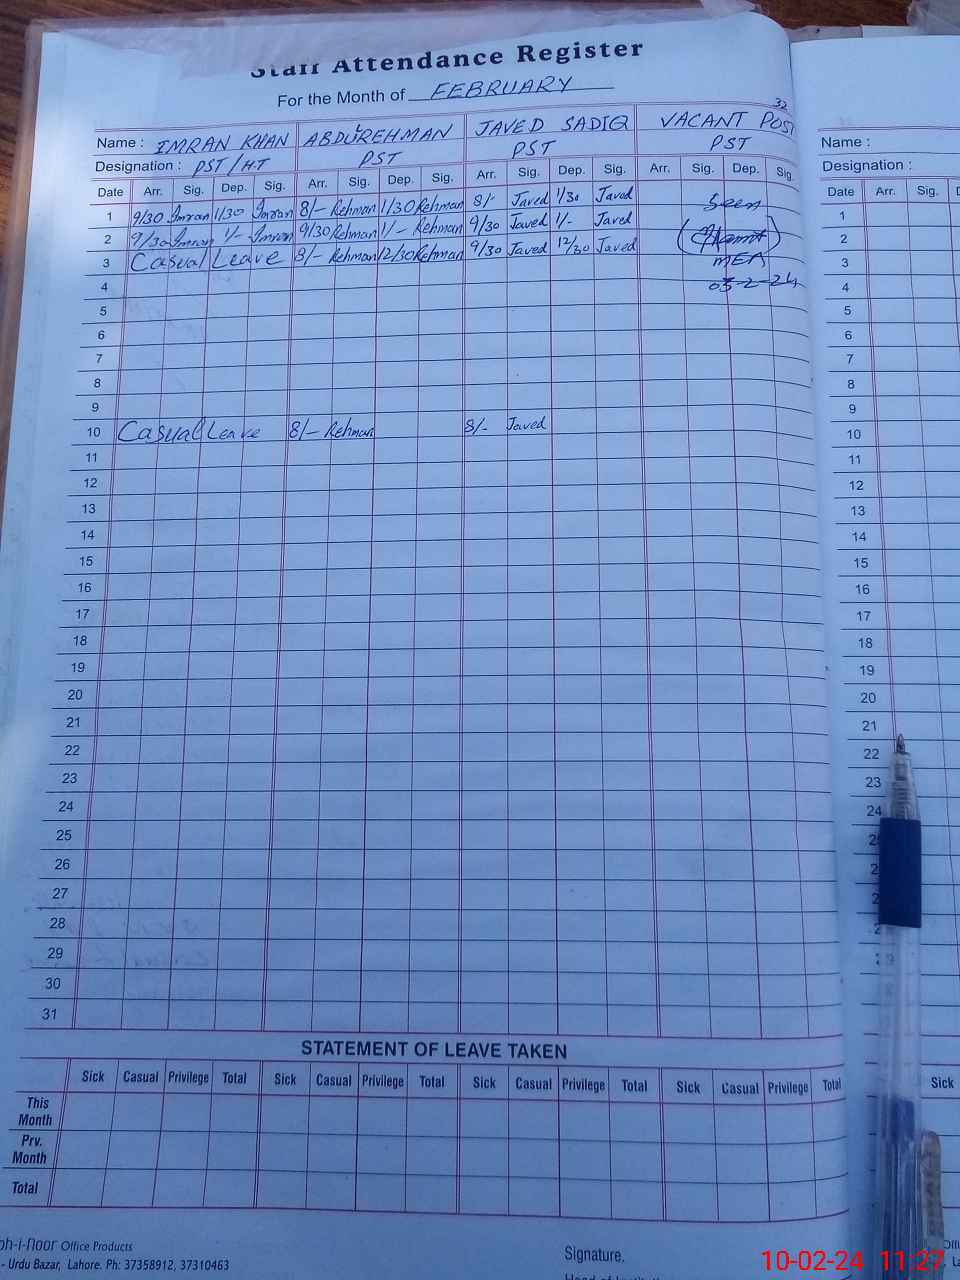 Staff Attendance Register
For the Month of FEBRUARY
32
Name : IMRAN KHAN ABDUREHMAN JAVED SADIQ VACANT POST Name :
Designation : PST/H.T PST PST PST Designation :
Date Arr. Sig. Dep. Sig. Arr. Sig. Dep. Sig. Arr. Sig. Dep. Sig. Arr. Sig. Dep. Sig. Date Arr. Sig.
1 9/30 Imran 1/30 Imran 8/- Rehman 1/30 Rehman 8/- Javed 1/30 Javed Seen 1
2 9/30 Imran 1/- Imran 9/30 Rehman 1/- Rehman 9/30 Javed 1/- Javed 2
3 Casual Leave 8/- Rehman 12/30 Rehman 9/30 Javed 12/30 Javed MEA 3
4 03-2-24 4
5 5
6 6
7 7
8 8
9 9
10 Casual Leave 8/- Rehman 8/- Javed 10
11 11
12 12
13 13
14 14
15 15
16 16
17 17
18 18
19 19
20 20
21 21
22 22
23 23
24 24
25
26
27
28
29
30
31
STATEMENT OF LEAVE TAKEN
Sick Casual Privilege Total Sick Casual Privilege Total Sick Casual Privilege Total Sick Casual Privilege Total Sick
This Month
Prv. Month
Total
Office Products
- Urdu Bazar, Lahore. Ph: 37358912, 37310463
Signature,
10-02-24 11:27